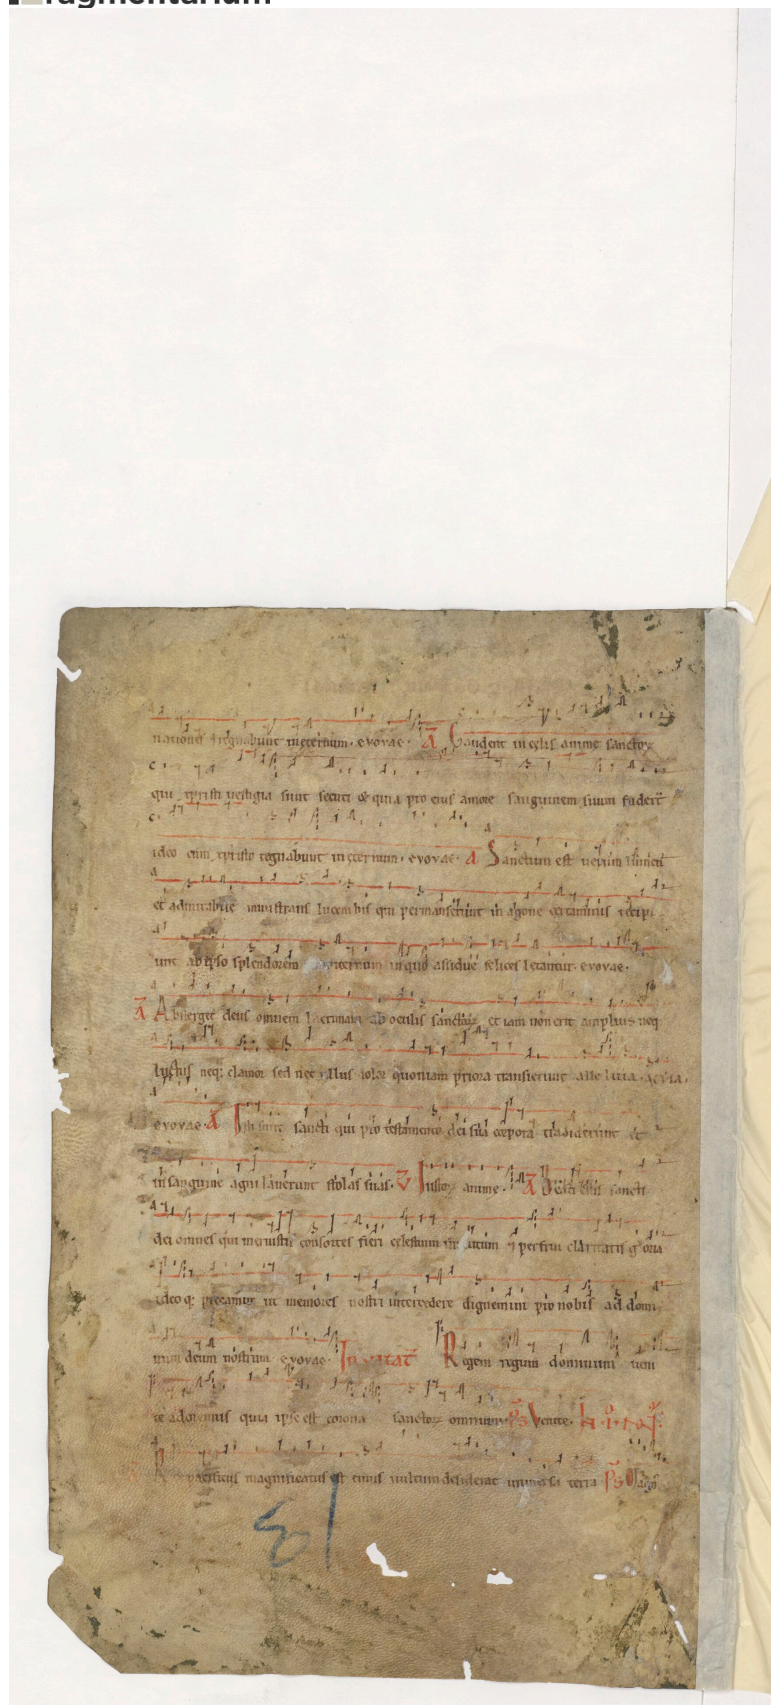 fragmentarium
regnabunt in eternum. evovae. A Gaudent in celis anime sanctoꝝ
qui xpristi vestigia sunt secuti & quia pro eius amore sanguinem suum fuder̄t
ideo cum xpristo regnabunt in eternum. evovae. A Sanctum est verum lumen
et admirabile ministrans lucem his qui permanserunt in agone certaminis recipi
unt ab ipso splendorem in quo assidue felices letantur. evovae.
A Absterget deus omnem lacrimam ab oculis sanctoꝝ et iam non erit amplius neq
luctus neq: clamor sed nec ullus dolor quoniam priora transierunt alleluia. aevia.
evovae. A Isti sunt sancti qui pro testamento dei sua corpora tradiderunt et
in sanguine agni laverunt stolas suas. V Iustoꝝ anime. A sancti
dei omnes qui meruistis consortes fieri celestium 7 perfrui claritatis gloria
ideo q: precamur ut memores nostri intercedere dignemini pro nobis ad domi
num deum nostrum. evovae. Invitat Regem regum dominum veni
te adoremus quia ipse est corona sanctoꝝ omnium. Ps Venite.
pacificus magnificatus est cuius vultum desiderat universa terra Ps